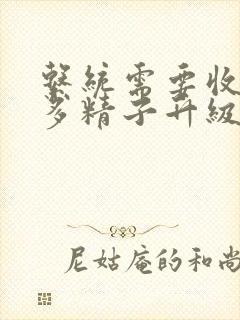 繫統需要收
多精子升級
尼姑庵的和尚